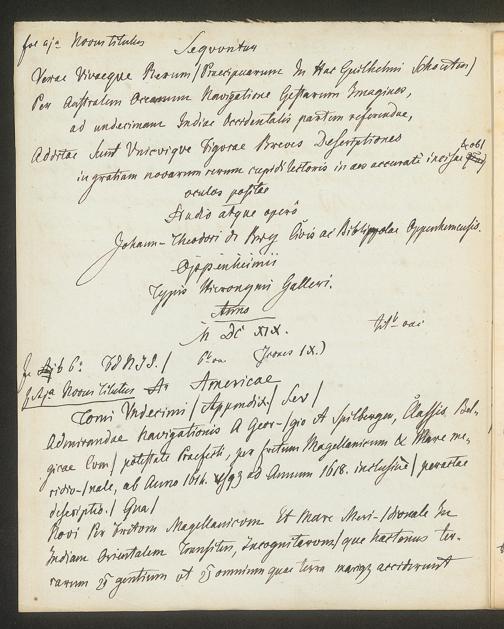 Novus titulus
Sequuntur
Verae Vivaeque Rerum / Praecipuarum In Hac Guilhelmi Schouten /
Per Australem Oceanum Navigatione Gestarum Imagines,
ad undecimam Indiae Occidentalis partem referendae,
Additae Sunt Unicuique Figurae Breves Descriptiones
in gratiam novarum rerum cupidi lectoris in aes accuratè incisae
oculos positae
Studio atque operâ
Johann-Theodori de Bry Civis ac Bibliopolae Oppenheimensis.
Oppenheimii
Typis Hieronymi Galleri.
Anno
M DC XIX.
Icones IX.)
Novus titulus Americae
Tomi Undecimi / Appendix / Seu /
Admirandae Navigationis A Geor-/gio A Spilbergen, Classis Bel-
gicae Cum / potestate Praefecti, per fretum Magellanicum & Mare me-
ridio-/nale, ab Anno 1614. ad Annum 1618. inclusivè / peractae
descriptio. / Qua /
Novi Per Fretum Magellanicum Et Mare Meri-/dionale In
Indiam Orientalem Transitus, Incognitarum / que hactenus ter-
rarum gentium ut omnium quae terra mariq3 acciderunt